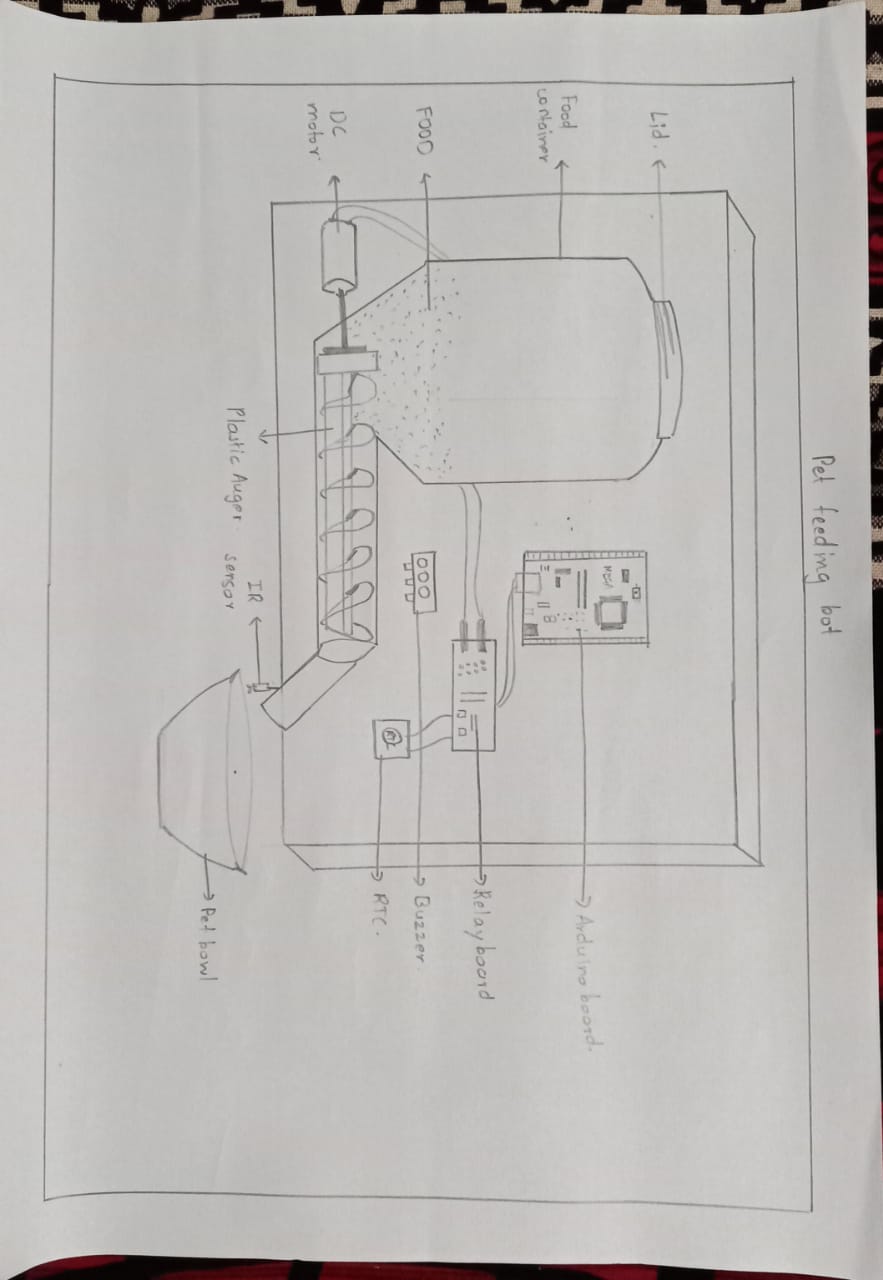 Pet feeding bot
Lid.
Food
container
FOOD
DC
motor.
Plastic Auger.
IR
sensor
MEGA
RTC
Arduino board.
Relay board
Buzzer.
RTC.
Pet bowl